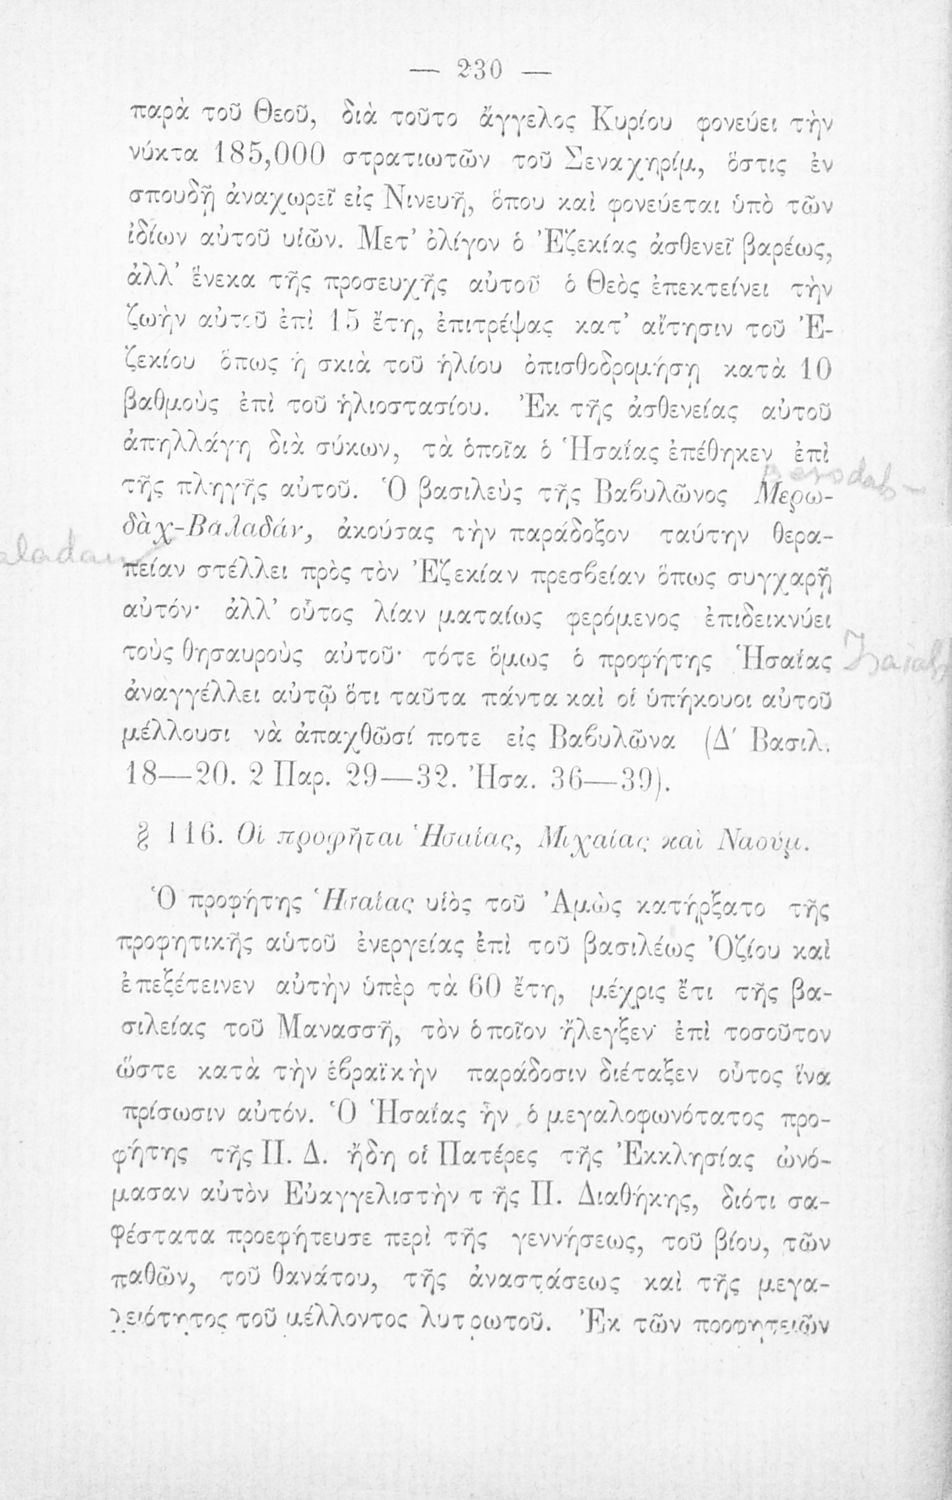 — 230 —
παρὰ τοῦ Θεοῦ, διὰ τοῦτο ἄγγελος Κυρίου φονεύει τὴν
νύκτα 185,000 στρατιωτῶν τοῦ Σεναχηρίμ, ὅστις ἐν
σπουδῇ ἀναχωρεῖ εἰς Νινευῆ, ὅπου καὶ φονεύεται ὑπὸ τῶν
ἰδίων αὐτοῦ υἱῶν. Μετ’ ὀλίγον ὁ Ἐζεκίας ἀσθενεῖ βαρέως,
ἀλλ’ ἕνεκα τῆς προσευχῆς αὐτοῦ ὁ Θεὸς ἐπεκτείνει τὴν
ζωὴν αὐτοῦ ἐπὶ 15 ἔτη, ἐπιτρέψας κατ’ αἴτησιν τοῦ Ἐ-
ζεκίου ὅπως ἡ σκιὰ τοῦ ἡλίου ὀπισθοδρομήσῃ κατὰ 10
βαθμοὺς ἐπὶ τοῦ ἡλιοστασίου. Ἐκ τῆς ἀσθενείας αὐτοῦ
ἀπηλλάγη διὰ σύκων, τὰ ὁποῖα ὁ Ἡσαΐας ἐπέθηκεν ἐπὶ
τῆς πληγῆς αὐτοῦ. Ὁ βασιλεὺς τῆς Βαβυλῶνος Μερω-
δὰχ-Βαλαδάν, ἀκούσας τὴν παράδοξον ταύτην θερα-
πείαν στέλλει πρὸς τὸν Ἐζεκίαν πρεσβείαν ὅπως συγχαρῇ
αὐτόν· ἀλλ’ οὗτος λίαν ματαίως φερόμενος ἐπιδεικνύει
τοὺς θησαυροὺς αὐτοῦ· τότε ὅμως ὁ προφήτης Ἡσαΐας Isaiah
ἀναγγέλλει αὐτῷ ὅτι ταῦτα πάντα καὶ οἱ ὑπήκουοι αὐτοῦ
μέλλουσι νὰ ἀπαχθῶσί ποτε εἰς Βαβυλῶνα (Δ΄ Βασιλ.
18—20. 2 Παρ. 29—32. Ἡσα. 36—39).
§ 116. Οἱ προφῆται Ἡσαΐας, Μιχαίας καὶ Ναούμ.
Ὁ προφήτης Ἡσαΐας υἱὸς τοῦ Ἀμὼς κατήρξατο τῆς
προφητικῆς αὑτοῦ ἐνεργείας ἐπὶ τοῦ βασιλέως Ὀζίου καὶ
ἐπεξέτεινεν αὐτὴν ὑπὲρ τὰ 60 ἔτη, μέχρις ἔτι τῆς βα-
σιλείας τοῦ Μανασσῆ, τὸν ὁποῖον ἤλεγξεν ἐπὶ τοσοῦτον
ὥστε κατὰ τὴν ἑβραϊκὴν παράδοσιν διέταξεν οὗτος ἵνα
πρίσωσιν αὐτόν. Ὁ Ἡσαΐας ἦν ὁ μεγαλοφωνότατος προ-
φήτης τῆς Π. Δ. ἤδη οἱ Πατέρες τῆς Ἐκκλησίας ὠνό-
μασαν αὐτὸν Εὐαγγελιστὴν τῆς Π. Διαθήκης, διότι σα-
φέστατα προεφήτευσε περὶ τῆς γεννήσεως, τοῦ βίου, τῶν
παθῶν, τοῦ θανάτου, τῆς ἀναστάσεως καὶ τῆς μεγα-
λειότητος τοῦ μέλλοντος λυτρωτοῦ. Ἐκ τῶν προφητειῶν